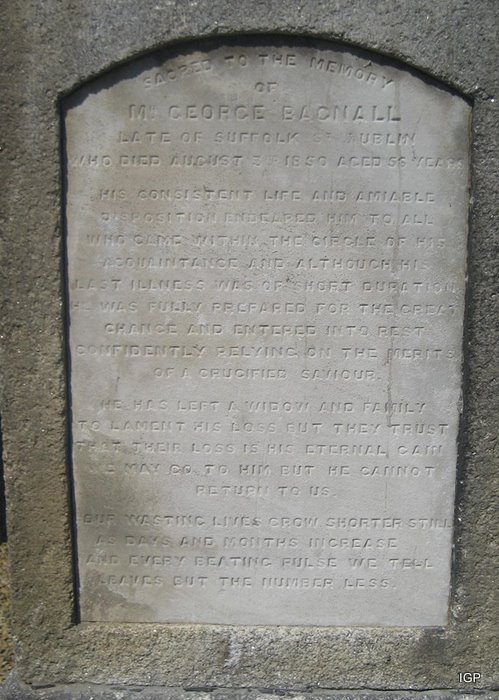 SACRED TO THE MEMORY
OF
Mr GEORGE BAGNALL
LATE OF SUFFOLK St DUBLIN
WHO DIED AUGUST 3rd 1850 AGED 56 YEARS
HIS CONSISTENT LIFE AND AMIABLE
DISPOSITION ENDEARED HIM TO ALL
WHO CAME WITHIN THE CIRCLE OF HIS
ACQUAINTANCE AND ALTHOUGH HIS
LAST ILLNESS WAS OF SHORT DURATION
HE WAS FULLY PREPARED FOR THE GREAT
CHANGE AND ENTERED INTO REST
CONFIDENTLY RELYING ON THE MERITS
OF A CRUCIFIED SAVIOUR.
HE HAS LEFT A WIDOW AND FAMILY
TO LAMENT HIS LOSS BUT THEY TRUST
THAT THEIR LOSS IS HIS ETERNAL GAIN
WE MAY GO TO HIM BUT HE CANNOT
RETURN TO US.
OUR WASTING LIVES GROW SHORTER STILL
AS DAYS AND MONTHS INCREASE
AND EVERY BEATING PULSE WE TELL
LEAVES BUT THE NUMBER LESS.
IGP